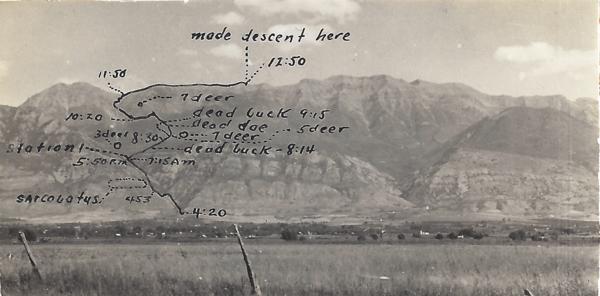 made descent here
12:50
11:50
7 deer
10:20
dead buck 9:15
dead doe
5 deer
3 deer
8:30
7 deer
Station 1
dead buck - 8:14
5:50 P.M
7:15 AM
Sarcobatus.
453
4:20